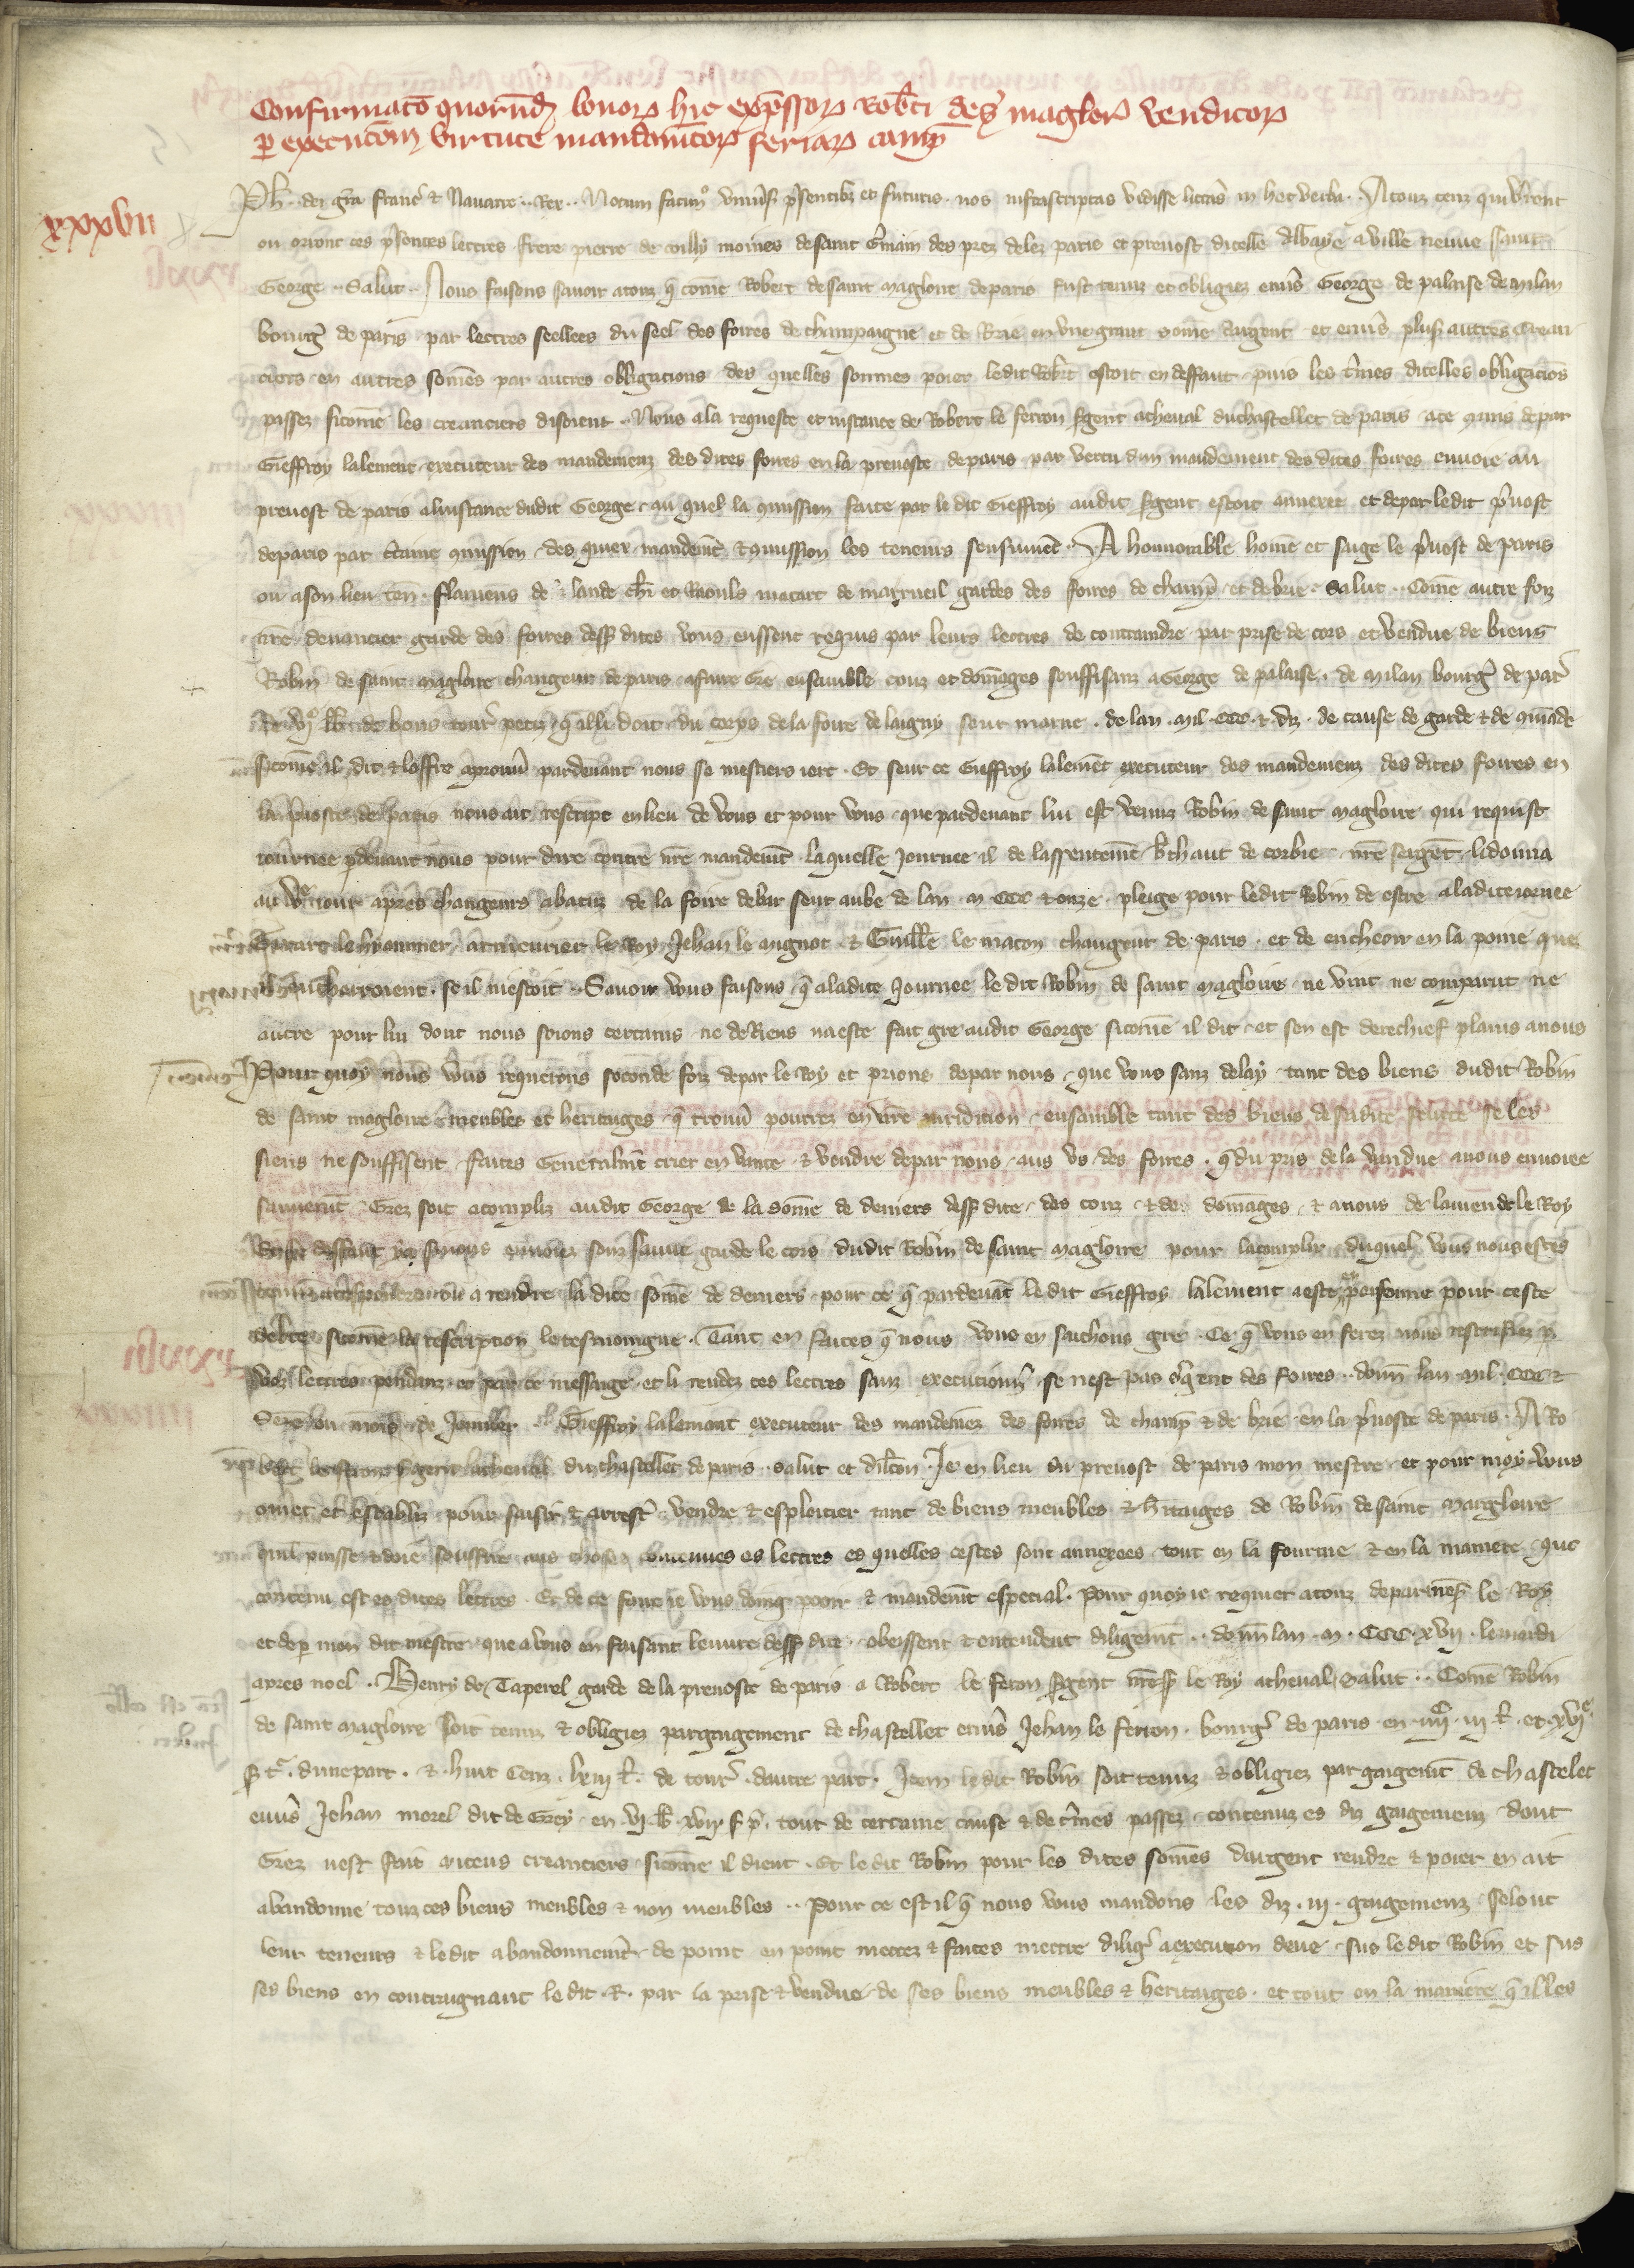 Confirmatō quorund bonor hic exp̄ssor Rob̄ti de s̄ maglor̄ venditor
p executōm virtute mandamētor feriar camp̄
xxxvii
Ph. dei gra franc̄ & Nauarre Rex. Notum facim⁹ vniu̅s p̄sentibz et futuris nos infrascriptas vidisse litt̅as in hec verba. A touz ceux qui v̅ront
ou orront ces p̄sentes lettres frere pierre de moines de saint G̅main des prez delez paris et preuost dicelle abbaye a ville neuue saint
George. Salut. Nous faisons sauoir a touz q̄ cōme Robert de saint magloire de paris fust tenuz et obligiez enu̅s George de palaise de milan
bourg̅ de paris par lettres seellees du seel des foires de champaigne et de Brie en vne grant sōme dargent et enu̅s plus̄ autres crean
ciers en autres sōmes par autres obligacions des quelles sommes poier ledit Rob̅t estoit en deffaut puis les t̅mes dicelles obligaciōs
passez sicōme les creanciers disoient. Nous a la requeste et instance de Robert le ferron s̄gent a cheual du chastellet de paris a ce mis de par
Gieffroy lalement executeur des mandemenz des dites foires en la preuoste de paris par vertu dun mandement des dites foires enuoie au
preuost de paris a linstance dudit George au quel la cōmission faite par le dit Gieffroy audit s̄gent estoit annexee et de par ledit p̄uost
de paris par c̅taine cōmission des quiex mandemēt & cōmission les teneurs sensuiuēt. A honnorable hōme et sage le p̄uost de paris
ou a son lieu ten̄. flamens de lande ch̄r et Raouls macart de marrueil gardes des foires de champ̄ et de brie. Salut. Cōme autre foiz
nr̄e deuancier garde des foires dess̄ dites vous eussent requis par leurs lettres de contraindre par prise de cors et vendue de biens
Robin de saint magloire changeur de paris a faire gre ensamble couz et domages souffisanz a George de palaise de milan bourg̅ de par̄
de bons tour̄ petiz q̄ il li doit du corps de la foire de laigny seur marne de lan mil CCC & diz de cause de garde & de cōmāde
sicōme il dit & loffre a prouu̅ pardeuant nous se mestiers iert. Et seur ce Gieffroy lalemēt executeur des mandemenz des dites foires en
la p̄uoste de paris nous ait rescript en lieu de vous et pour vous que pardeuant lui est venuz Robin de saint magloire qui requist
iournee pdeuant nous pour dire contre nr̄e mandemēt laquelle journee il de lassentemēt b̅thaut de corbie nr̄e sergēt li donna
au iour apres changeurs abatuz de la foire de bar seur aube de lan m CCC & onze pleige pour ledit Robin de estre a la dite iornee
armeurier le Roy Jehan le mignot & Guille le macon changeur de paris et de encheoir en la poine que
il encharroient se il niestoit. Sauoir vous faisons q̄ a la dite Journee le dit Robin de saint magloire ne vint ne comparut ne
autre pour lui dont nous soions certains ne de Riens na este fait gre audit George sicōme il dit et sen est derechief plains a nous
Pour quoy nous vous requerons seconde foiz de par le Roy et prions de par nous que vous sanz delay tant des biens dudit Robin
de saint magloire meubles et heritages q̄ trouu̅ pourrez en vr̄e iuridition ensamble tant des biens de sadite se les
siens ne souffisent faites generalmēt crier en vante & vendre de par nous aus vs des foires q̄ du pris de la vendue a nous enuoiee
sauuemēt Grez soit acompliz audit George de la sōme de deniers dess̄ dite des couz & des domages & a nous de lamende le Roy
enuoiez souz sauue garde le cors dudit Robin de saint magloire pour lacomplir duquel vous nous estes
a rendre la dite sōme de deniers pour ce q̄ pardeuāt le dit Gieffroy lalement a este en personne pour ceste
debte sicōme la rescription le tesmoingne. Tant en faites q̄ nous vous en sachons gre. Ce q̄ vous en ferez nous rescrisiez p
voz lettres pendanz ce message et li rendez ces lettres sanz executiom̄ se nest pas s̄gent des foires. donn̄ lan mil CCC &
seze ou mois de Gieffroy lalemant executeur des mandemēz des foires de champ̄ & de brie en la p̄uoste de paris. A Ro
bert le s̄gent a cheual du chastellet de paris salut et dil̄ton. Je en lieu du preuost de paris mon mestre et pour moy vous
cōmet et establiz pour saisir & arrest̄ vendre & esploitier tant de biens meubles & h̄itaiges de Robin de saint magloire
quil puisse & doie souffire aus choses contenues es lettres es quelles cestes sont annexees tout en la fourme & en la maniere que
contenu est es dites lettres. Et de ce faire ie vous doing pooir & mandemēt especial. pour quoy ie requier a touz de par nos̄ le Roy
et de p mon dit mestre que a vous en faisant leuure dess̄ dite obeissent & entendent diligēmt. donn̄ lan m. CCC. xvii. le mardi
apres noel. Henry de Taperel garde de la preuoste de paris a Robert le feron s̄gent nr̄es̄ le Roy a cheual salut. Cōme Robin
de saint magloire soit tenuz & obligiez par gagement de chastellet enu̅s Jehan le ferron bourg̅ de paris en
dune part & huit cenz lxiii l. de tour̄ dautre part. Item ledit Robin soit tenuz & obligiez par gaigemēt de chastelet
enu̅s Jehan morel dit de Grey en tout de certaine cause & de t̅mes passez contenuz es diz gaigemenz dont
Grez nest fait a iceus creanciers sicōme il dient. Et le dit Robin pour les dites sōmes dargent rendre & poier en ait
abandonne touz ces biens meubles & non meubles. Pour ce est il q̄ nous vous mandons les diz iii gaigemenz selonc
leur teneurs & ledit abandonnemēt de point en point mettez & faites mettre dilig̅ a execucon deue sus ledit Robin et sus
ses biens en contraignant le dit R. par la prise & vendue de ses biens meubles & heritaiges et tout en la maniere q̄ il les